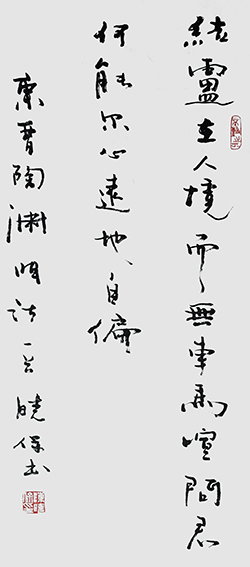 結盧在人境而無車馬喧問君
何能尔心遠地自偏
東晉陶渊明詩一首曉保书